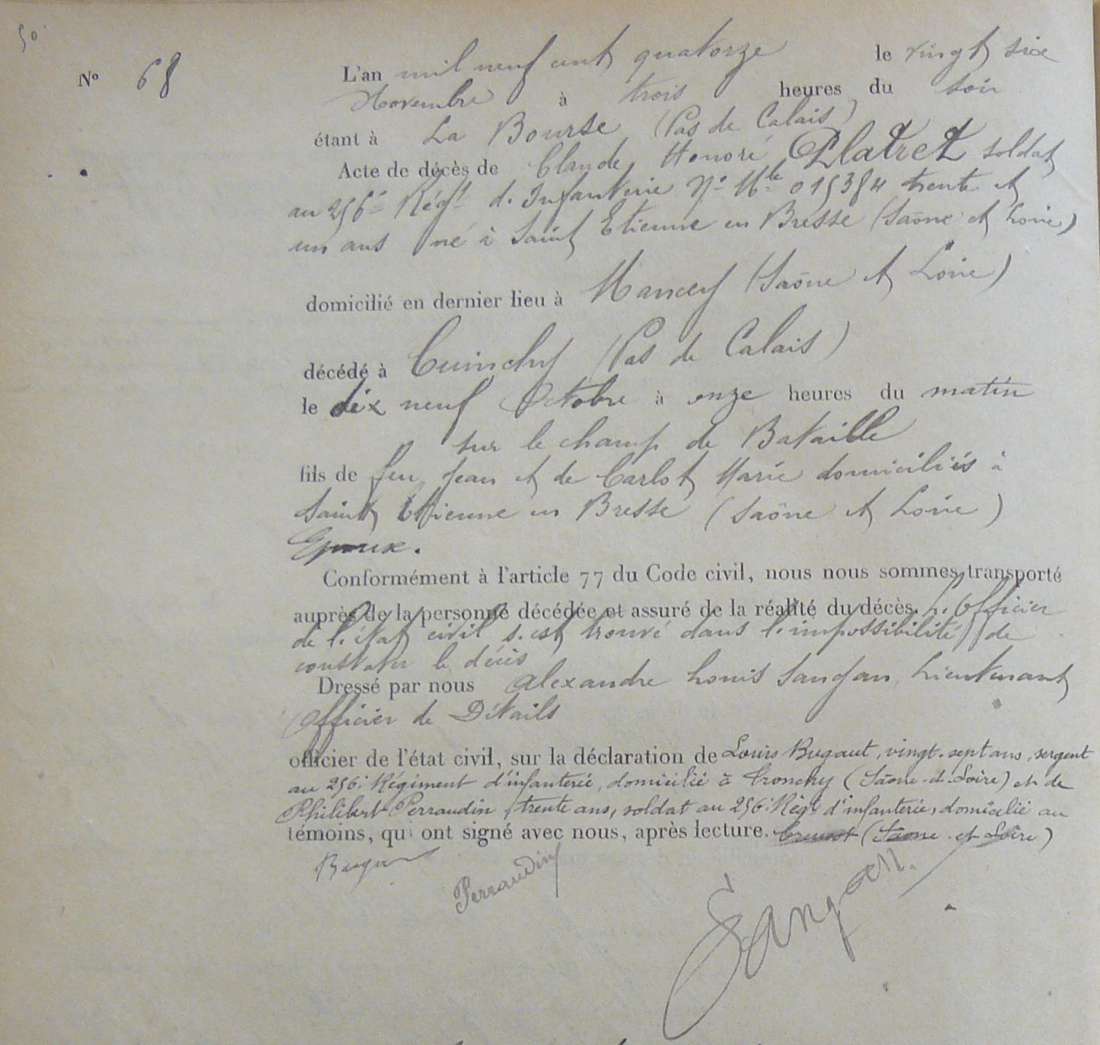 50
N° 68
L'an mil neuf cent quatorze le vingt six
Novembre à trois heures du soir
étant à La Bourse (Pas de Calais)
Acte de décès de Claude Honoré Platret soldat
au 256e Régt d'Infanterie N° Mle 015384 trente et
un ans né à Saint Etienne en Bresse (Saône et Loire)
domicilié en dernier lieu à Mancey (Saône et Loire)
décédé à Cuinchy (Pas de Calais)
le dix neuf Octobre à onze heures du matin
sur le champ de Bataille
fils de feu Jean et de Carlot Marie domiciliés à
Saint Etienne en Bresse (Saône et Loire)
Epoux.
Conformément à l'article 77 du Code civil, nous nous sommes transporté
auprès de la personne décédée et assuré de la réalité du décès. L'Officier
de l'état civil s'est trouvé dans l'impossibilité de
constater le décès
Dressé par nous Alexandre Louis Sangan, Lieutenant
Officier de Détails
officier de l'état civil, sur la déclaration de Louis Bugaut, vingt-sept ans, sergent
au 256e Régiment d'infanterie, domicilié à Tronchy (Saône-et-Loire) et de
Philibert Perraudin, trente ans, soldat au 256e Régt d'infanterie, domicilié au
témoins, qui ont signé avec nous, après lecture. Creusot (Saône-et-Loire)
Perraudin
Sangan